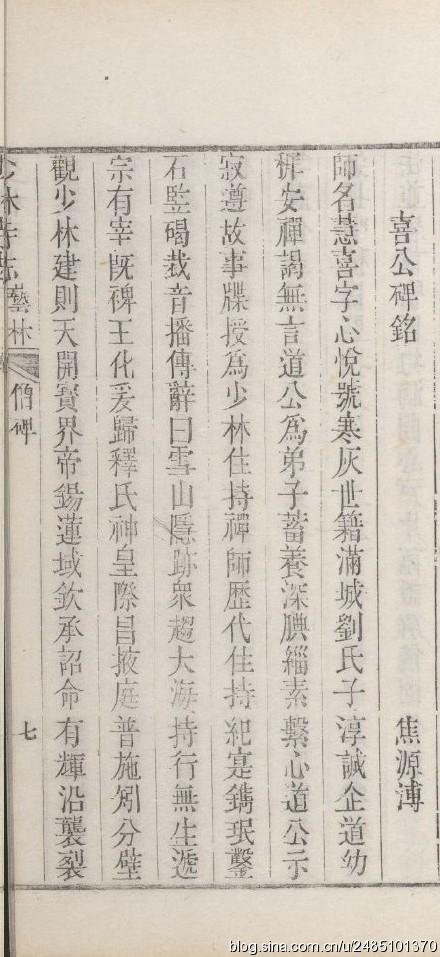 喜公碑銘 焦源溥
師名慧喜字心悅號寒灰世籍滿城劉氏子淳誠企道幼
樨安禪謁無言道公為弟子蓄養深腆緇素繫心道公示
寂遵故事牒授為少林住持禪師歷代住持紀寔鐫珉鑿
石監碣裁音播傳辭曰雪山隱跡衆超大海持行無生遞
宗有宰旣裨王化爰歸釋氏神皇際昌掖庭普施矧分壁
觀少林建則天開寶界帝錫蓮域欽承詔命有輝沿襲裂
少林寺志 藝林 僧碑 七
blog.sina.com.cn/u/2485101370